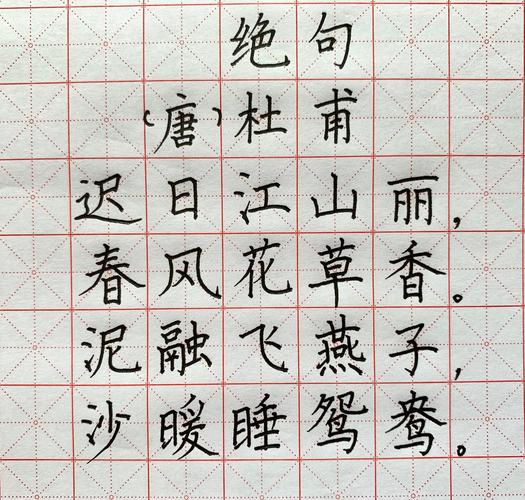 绝句
(唐)杜甫
迟日江山丽,
春风花草香。
泥融飞燕子,
沙暖睡鸳鸯。